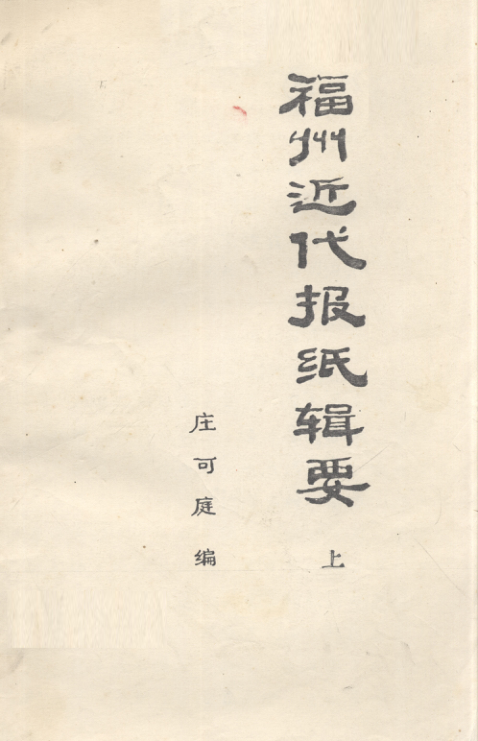 福州近代报纸辑要
上
庄可庭编